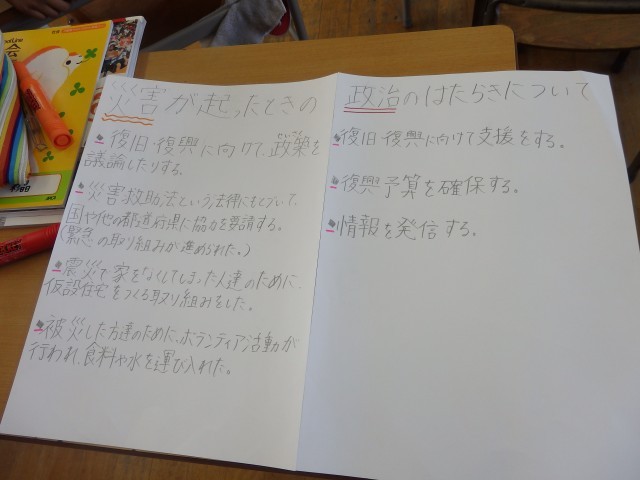 災害が起ったときの
復旧・復興に向けて、政策を
議論したりする。
災害救助法という法律にもとづいて、
国や他の都道府県に協力を要請する。
(緊急の取り組みが進められた。)
震災で家をなくしてしまった人達のために、
仮設住宅をつくる取り組みをした。
被災した方達のために、ボランティア活動が
行われ、食料や水を運び入れた。
政治のはたらきについて
復旧・復興に向けて支援をする。
復興予算を確保する。
情報を発信する。